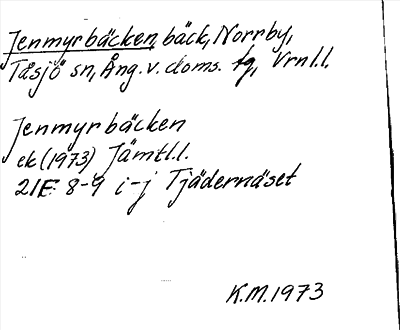 Jenmyrbäcken, bäck, Norrby,
Tåsjö sn, Ång. v. doms. tg, Vrnl.l.
Jenmyrbäcken
ek (1973) Jämtl.l.
21E 8-9 i-j Tjädernäset
K.M. 1973